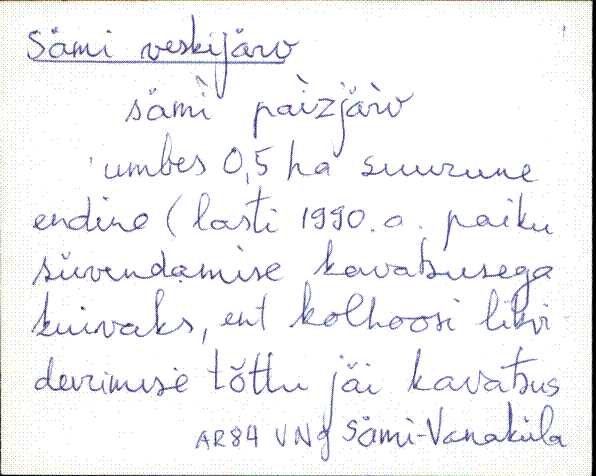 Sämi veskijärv
sämì pàizjärv
umbes 0,5 ha suurune
endine (lasti 1990. a. paiku
süvendamise kavatsusega
kuivaks, ent kolhoosi likvi-
deerimise tõttu jäi kavatsus
AR84 VNg Sämi-Vanaküla